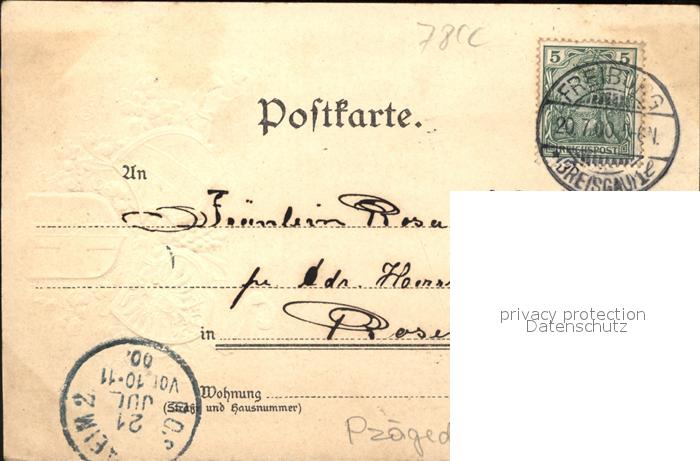 78CC
5 5
REICHSPOST
FREIBURG
20.7.00.
(BREISGAU)
Postkarte.
An
Fräulein Rosa
pr. Adr. Herrn
in Rose
Wohnung
(Straße und Hausnummer)
21
JUL
00.
VOR 10-11
HEIM 2
Präged
privacy protection
Datenschutz